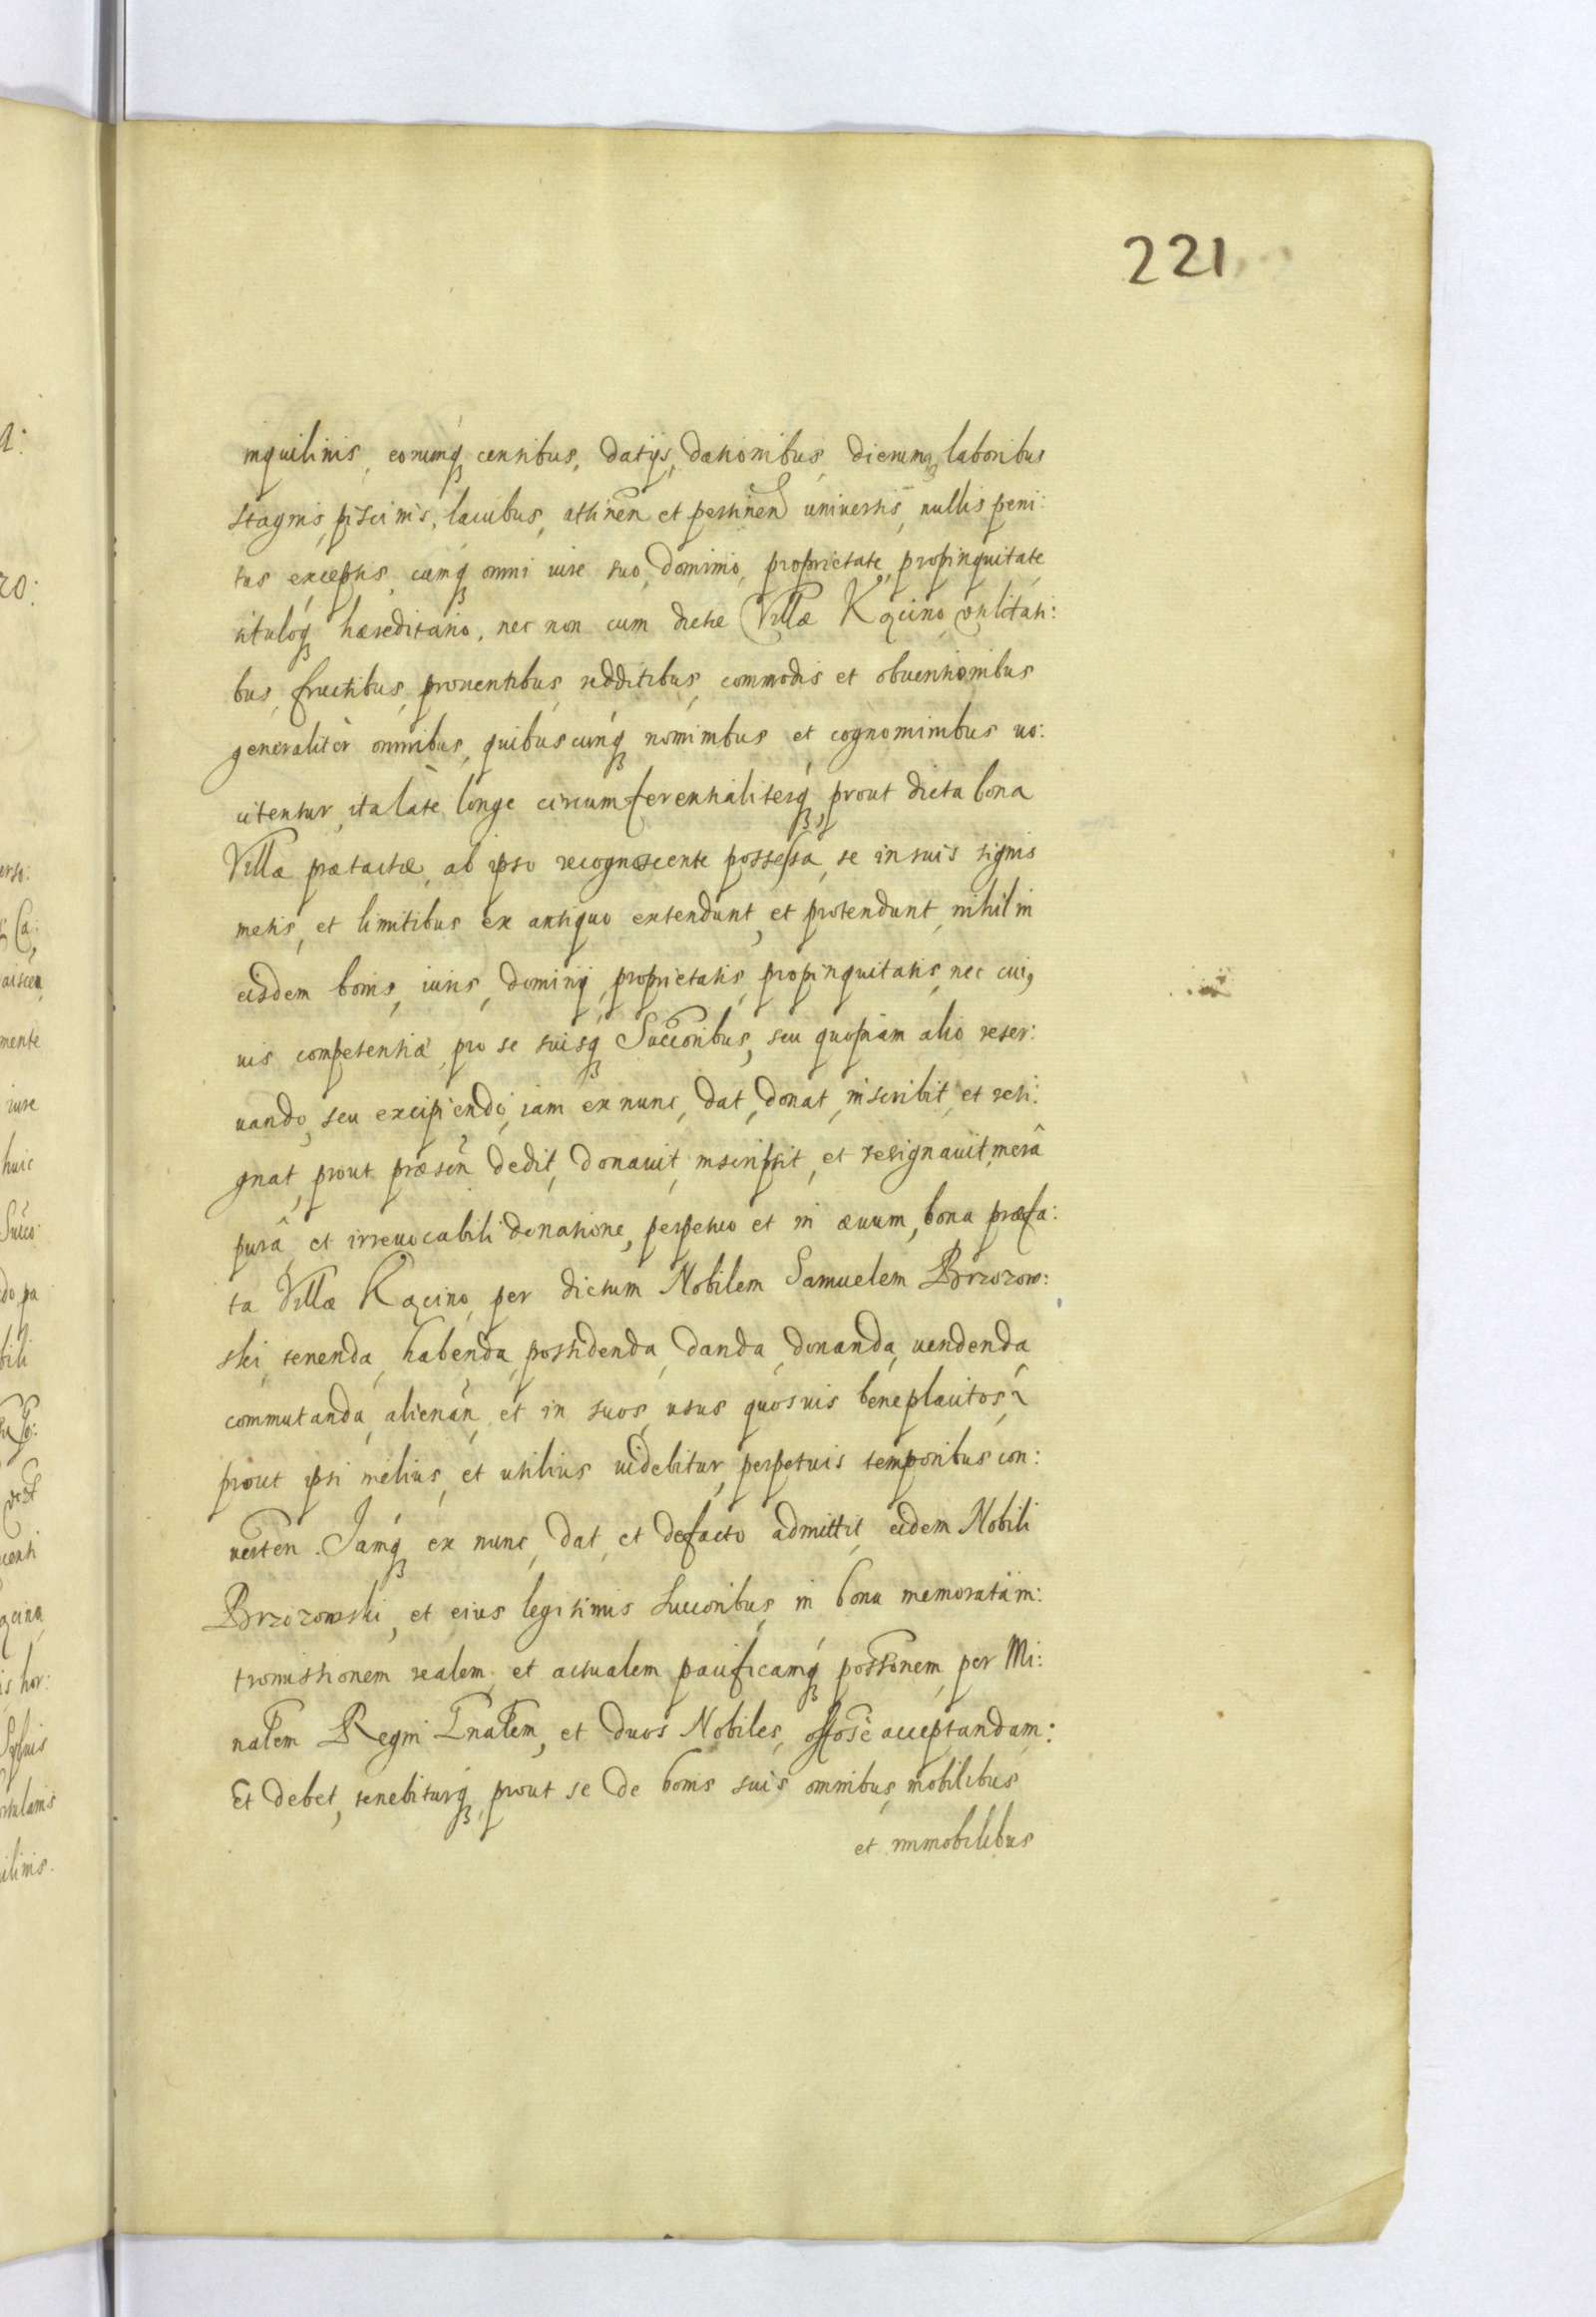 221
inquilinis, eorumq́ꝫ censibus, datijs, dationibus, dierumq́ꝫ laboribus
stagnis, piscinis, lacubus, attineñ et pertineñ universis, nullis peni:
tus exceptis, cumq́ꝫ omni iure suo, dominio, proprietate, propinquitate
tituloq́ꝫ hæreditario, nec non cum dictæ Villæ Kącino utilitati:
bus, fructibus, prouentibus, redditibus, commodis et obuentionibus
generalitèr omnibus, quibuscunq́ꝫ nominibus et cognominibus uo:
citentur, ita làte longe circumferentialiterq́ꝫ, prout dicta bona
Villæ prætactæ, ab ipso recognoscente possessa, se in suis signis
metis, et limitibus ex antiquo extendunt, et protendunt, nihil in
eisdem bonis, iuris, dominij, proprietatis, propinquitatis, nec cui,
uis competentiæ, pro se suisq́ꝫ Succoribus, seu quopiam alio reser:
uando, seu excipiendo, iam ex nunc, dat, donat, inscribit, et resi:
gnat, prout præseñ dedit, donauit, inscripsit, et resignauit, merâ
purâ, et irreuocabili donatione, perpetuo et in æuum, bona præfa:
ta Villæ Kącino, per dictum Nobilem Samuelem Brzozow:
ski, tenenda, habenda, possidenda, danda, donanda, uendenda,
commutanda, alienañ, et in suos usus quosuis beneplacitos,
prout ipsi melius, et utilius uidebitur, perpetuis temporibus con:
uerteñ. Jamq́ꝫ ex nunc, dat, et defacto admittit, eidem Nobili
Brzozowski, et eius legitimis Succoribus, in bona memorata in:
tromissionem realem, et actualem pacificamq́ꝫ possonem, per Mi:
nalem Regni Gnalem, et duos Nobiles, offose acceptandam:
Et debet, tenebiturq́ꝫ, prout se de bonis suis omnibus, mobilibus
et immobilibus